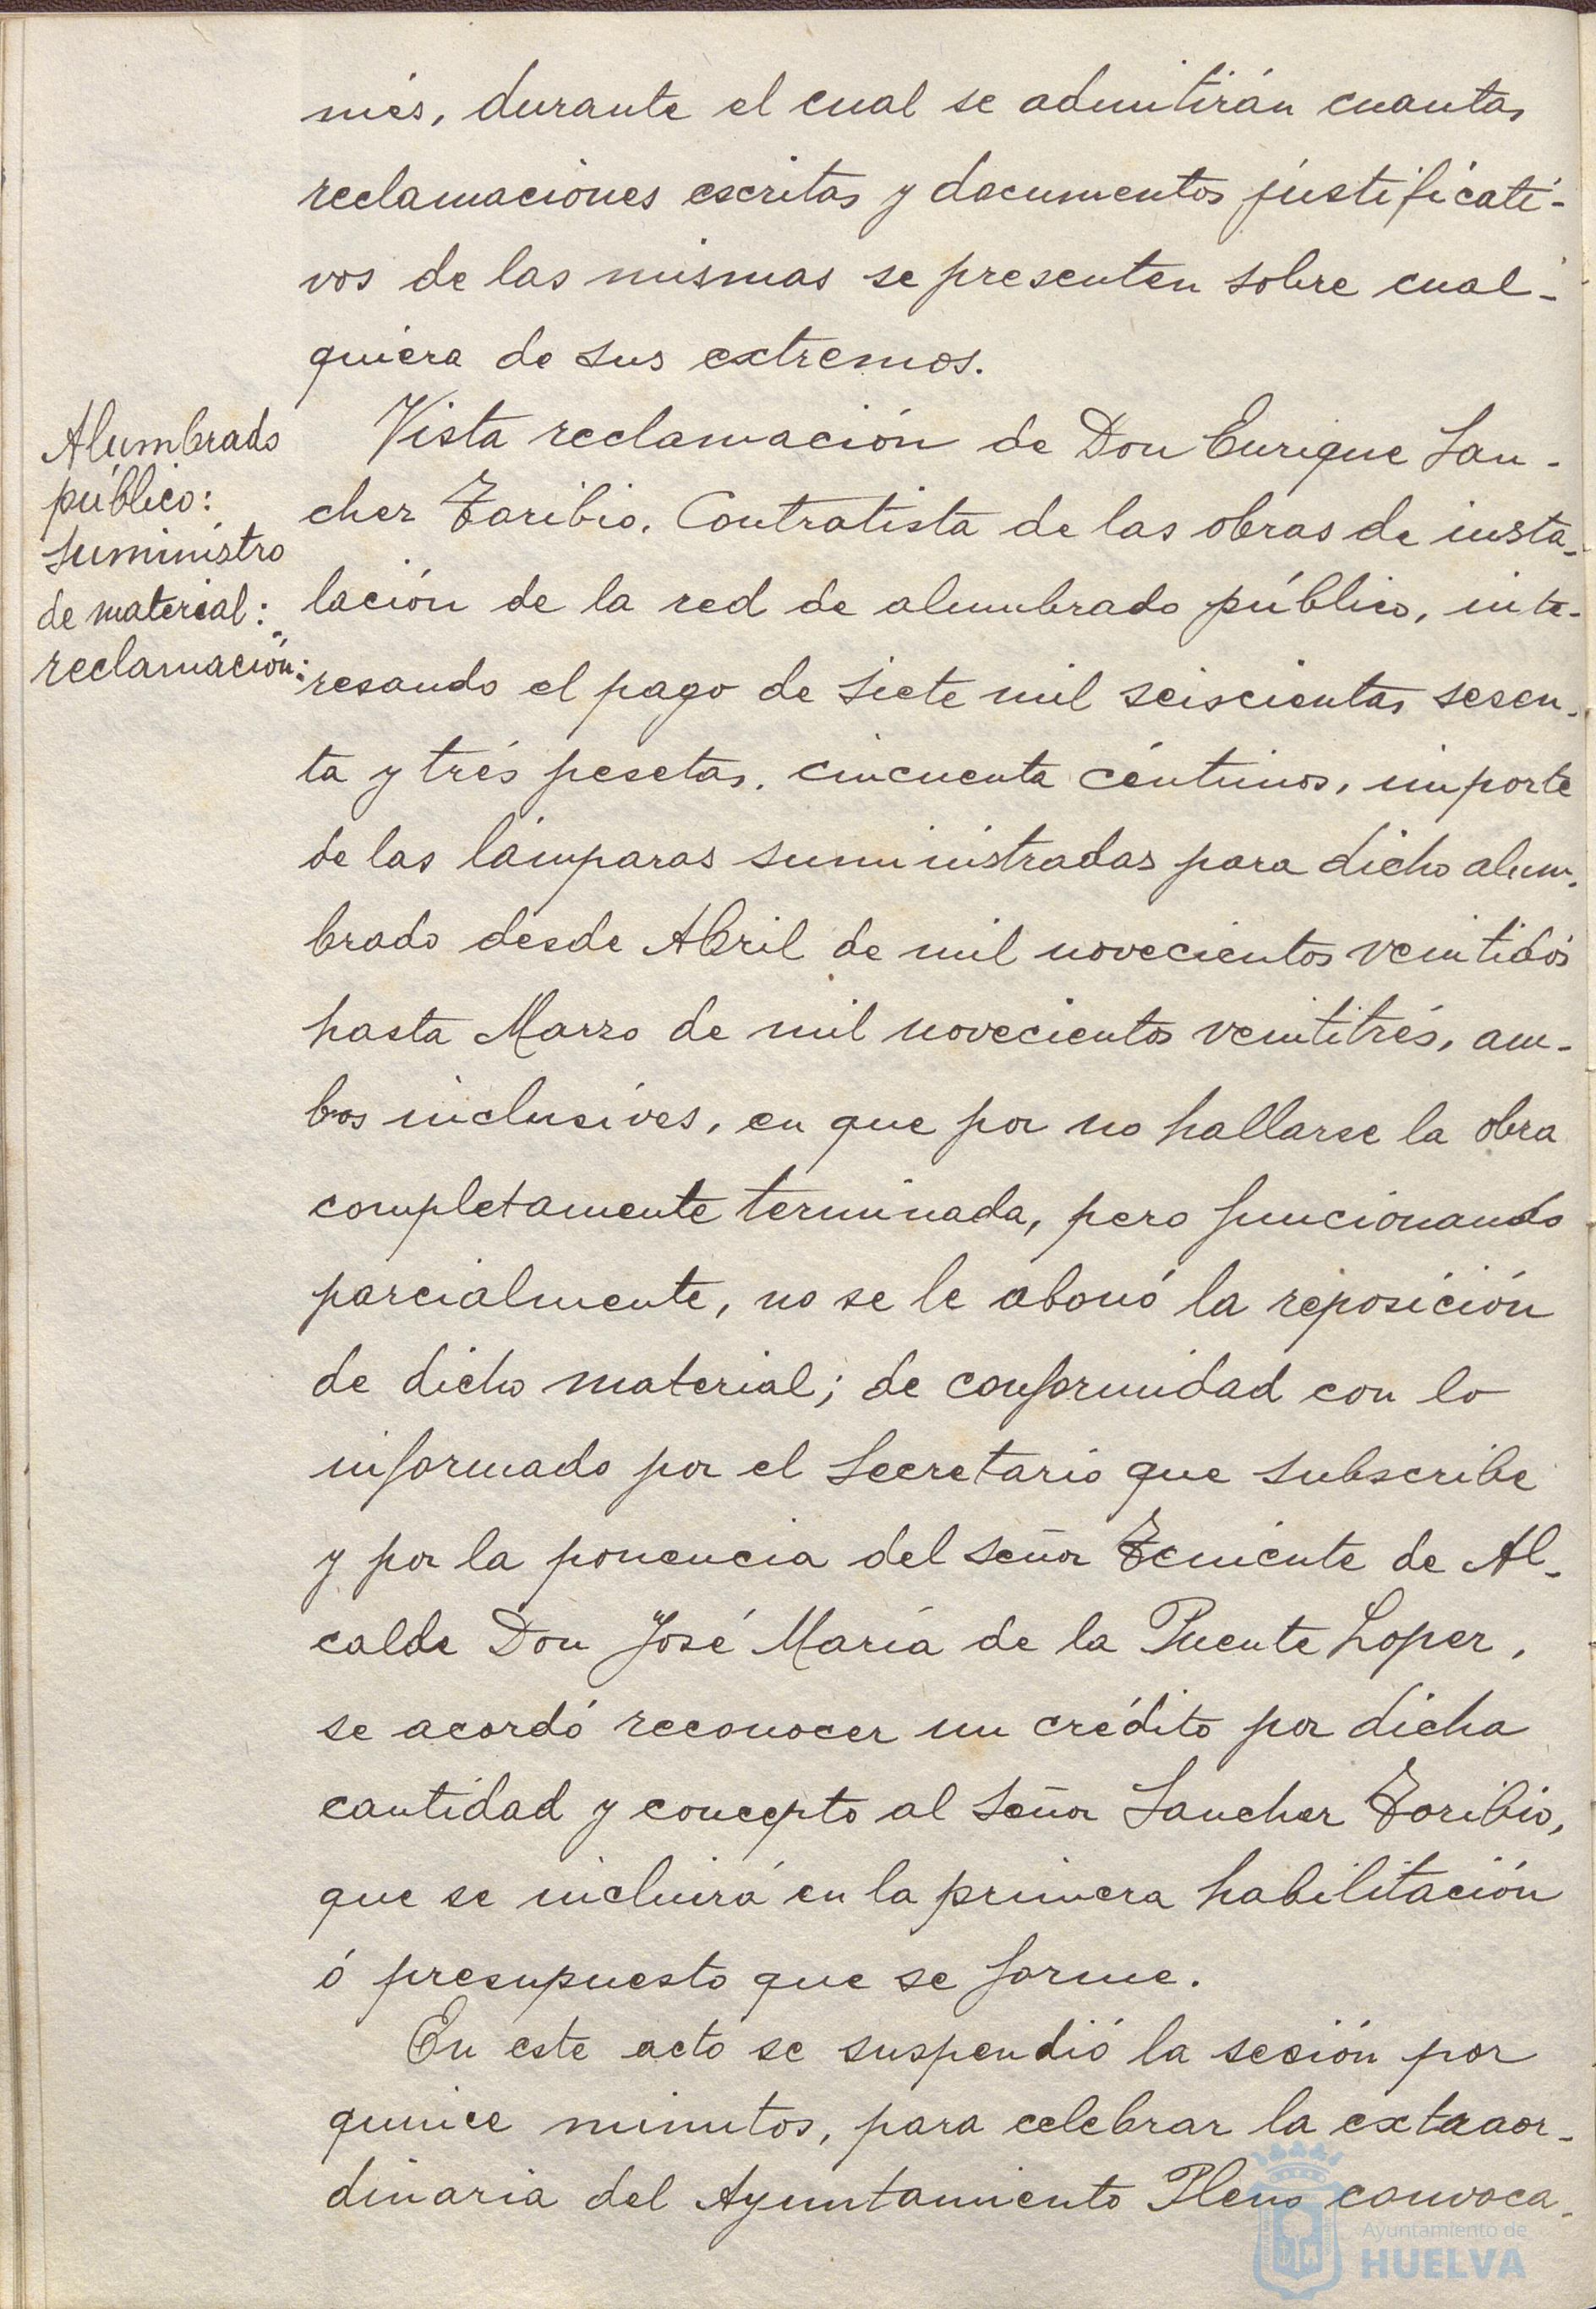 més, durante el cual se admitirán cuantas
reclamaciones escritas y documentos justificati-
vos de las mismas se presenten sobre cual-
quiera de sus extremos.
Alumbrado
público:
suministro
de material:
reclamación:
Vista reclamación de Don Enrique San-
chez Toribio. Contratista de las obras de insta-
lación de la red de alumbrado público, inte-
resando el pago de siete mil seiscientas sesen-
ta y trés pesetas, cincuenta céntimos, importe
de las lámparas suministradas para dicho alum-
brado desde Abril de mil novecientos veintidós
hasta Marzo de mil novecientos veintitrés, am-
bos inclusives, en que por no hallarse la obra
completamente terminada, pero funcionando
parcialmente, no se le abonó la reposición
de dicho material; de conformidad con lo
informado por el Secretario que subscribe
y por la ponencia del señor Teniente de Al-
calde Don José María de la Puente Lopez,
se acordó reconocer un crédito por dicha
cantidad y concepto al Señor Sanchez Toribio,
que se incluirá en la primera habilitación
ó presupuesto que se forme.
En este acto se suspendió la sesión por
quince minutos, para celebrar la extraor-
dinaria del Ayuntamiento Pleno convoca-
Ayuntamiento de
HUELVA